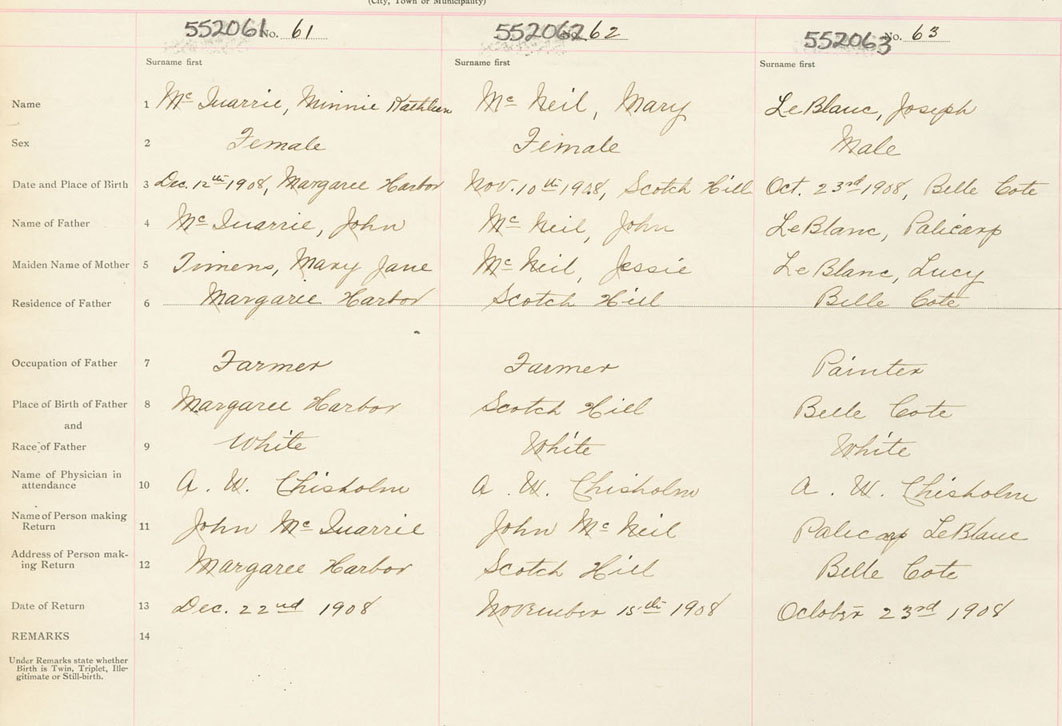 (City, Town or Municipality)
552061 No. 61 552062 62 552063 No. 63
Surname first Surname first Surname first
Name 1 Mc Quarrie, Minnie Kathleen Mc Neil, Mary LeBlanc, Joseph
Sex 2 Female Female Male
Date and Place of Birth 3 Dec. 12th 1908, Margaree Harbor Nov. 10th 1908, Scotch Hill Oct. 23rd 1908, Belle Cote
Name of Father 4 Mc Quarrie, John Mc Neil, John LeBlanc, Palicarp
Maiden Name of Mother 5 Timens, Mary Jane Mc Neil, Jessie LeBlanc, Lucy
Residence of Father 6 Margarie Harbor Scotch Hill Belle Cote
Occupation of Father 7 Farmer Farmer Painter
Place of Birth of Father 8 Margaree Harbor Scotch Hill Belle Cote
and
Race of Father 9 White White White
Name of Physician in
attendance 10 A. W. Chisholm A. W. Chisholm A. W. Chisholm
Name of Person making
Return 11 John Mc Quarrie John Mc Neil Palicarp LeBlanc
Address of Person mak-
ing Return 12 Margaree Harbor Scotch Hill Belle Cote
Date of Return 13 Dec. 22nd 1908 November 15th 1908 October 23rd 1908
REMARKS 14
Under Remarks state whether
Birth is Twin, Triplet, Ille-
gitimate or Still-birth.